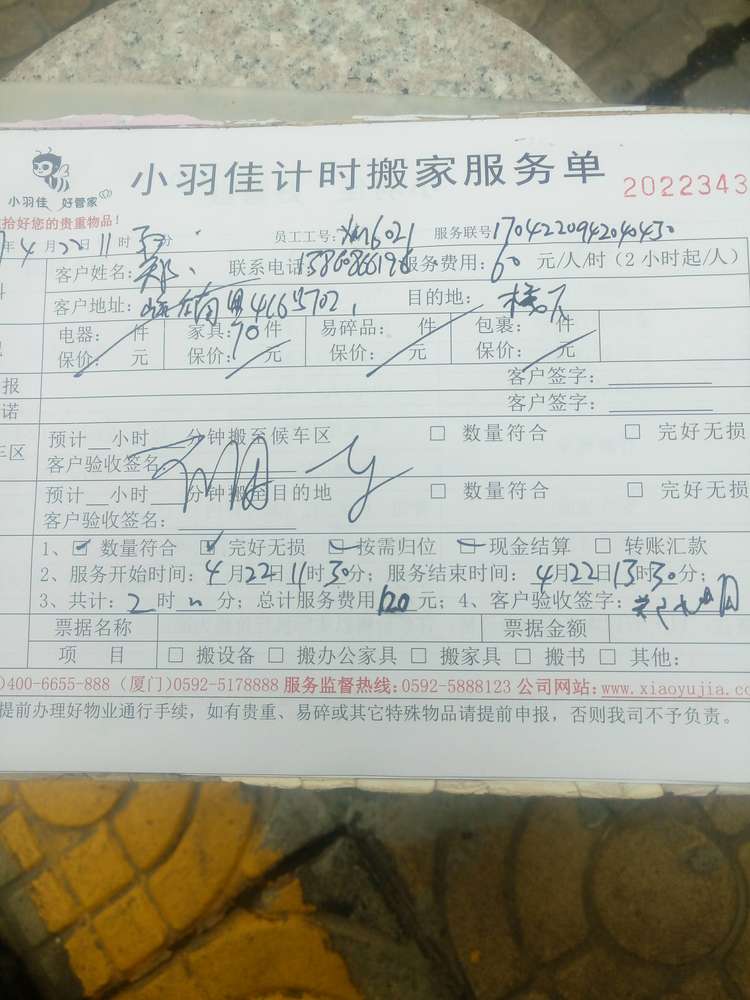 小羽佳 好管家
小羽佳计时搬家服务单
2022343
拾好您的贵重物品!
年4月22日11时30分 员工工号:XM6021 服务联号170422094204043０
客户姓名:郑 联系电话 服务费用:60元/人/时(2小时起/人)
客户地址: 目的地:
电器: 件 家具:70件 易碎品: 件 包裹: 件
保价: 元 保价: 元 保价: 元 保价: 元
报 客户签字:
诺 客户签字:
预计__小时__分钟搬至候车区 □ 数量符合 □ 完好无损
车区
客户验收签名:
预计__小时__分钟搬至目的地 □ 数量符合 □ 完好无损
客户验收签名:
1、☑ 数量符合 ☑ 完好无损 ☑ 按需归位 ☑ 现金结算 □ 转账汇款
2、服务开始时间:4月22日11时30分; 服务结束时间:4月22日13时30分;
3、共计:2时 分; 总计服务费用120元; 4、客户验收签字:
票据名称 票据金额
项 目 □ 搬设备 □ 搬办公家具 □ 搬家具 □ 搬书 □ 其他:
)400-6655-888 (厦门)0592-5178888 服务监督热线:0592-5888123 公司网站:www.xiaoyujia.com
提前办理好物业通行手续,如有贵重、易碎或其它特殊物品请提前申报,否则我司不予负责。